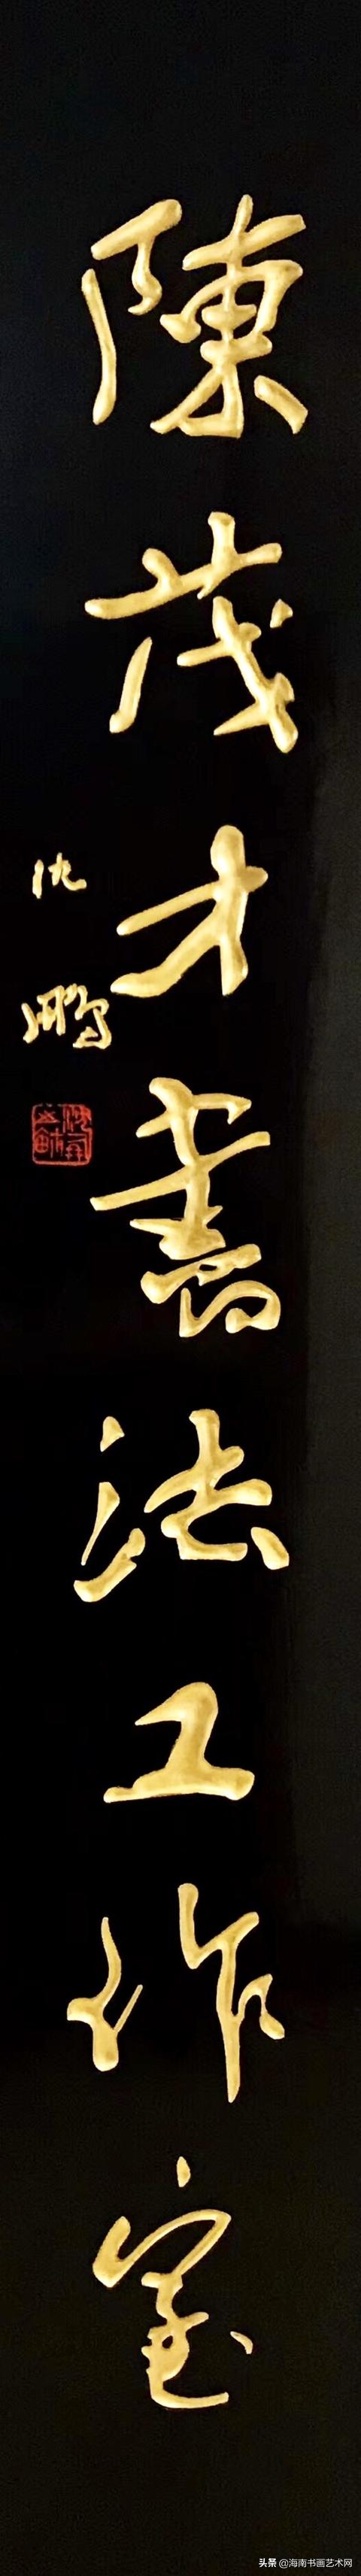 陳茂才書法工作室
沈鹏
头条 @海南书画艺术网